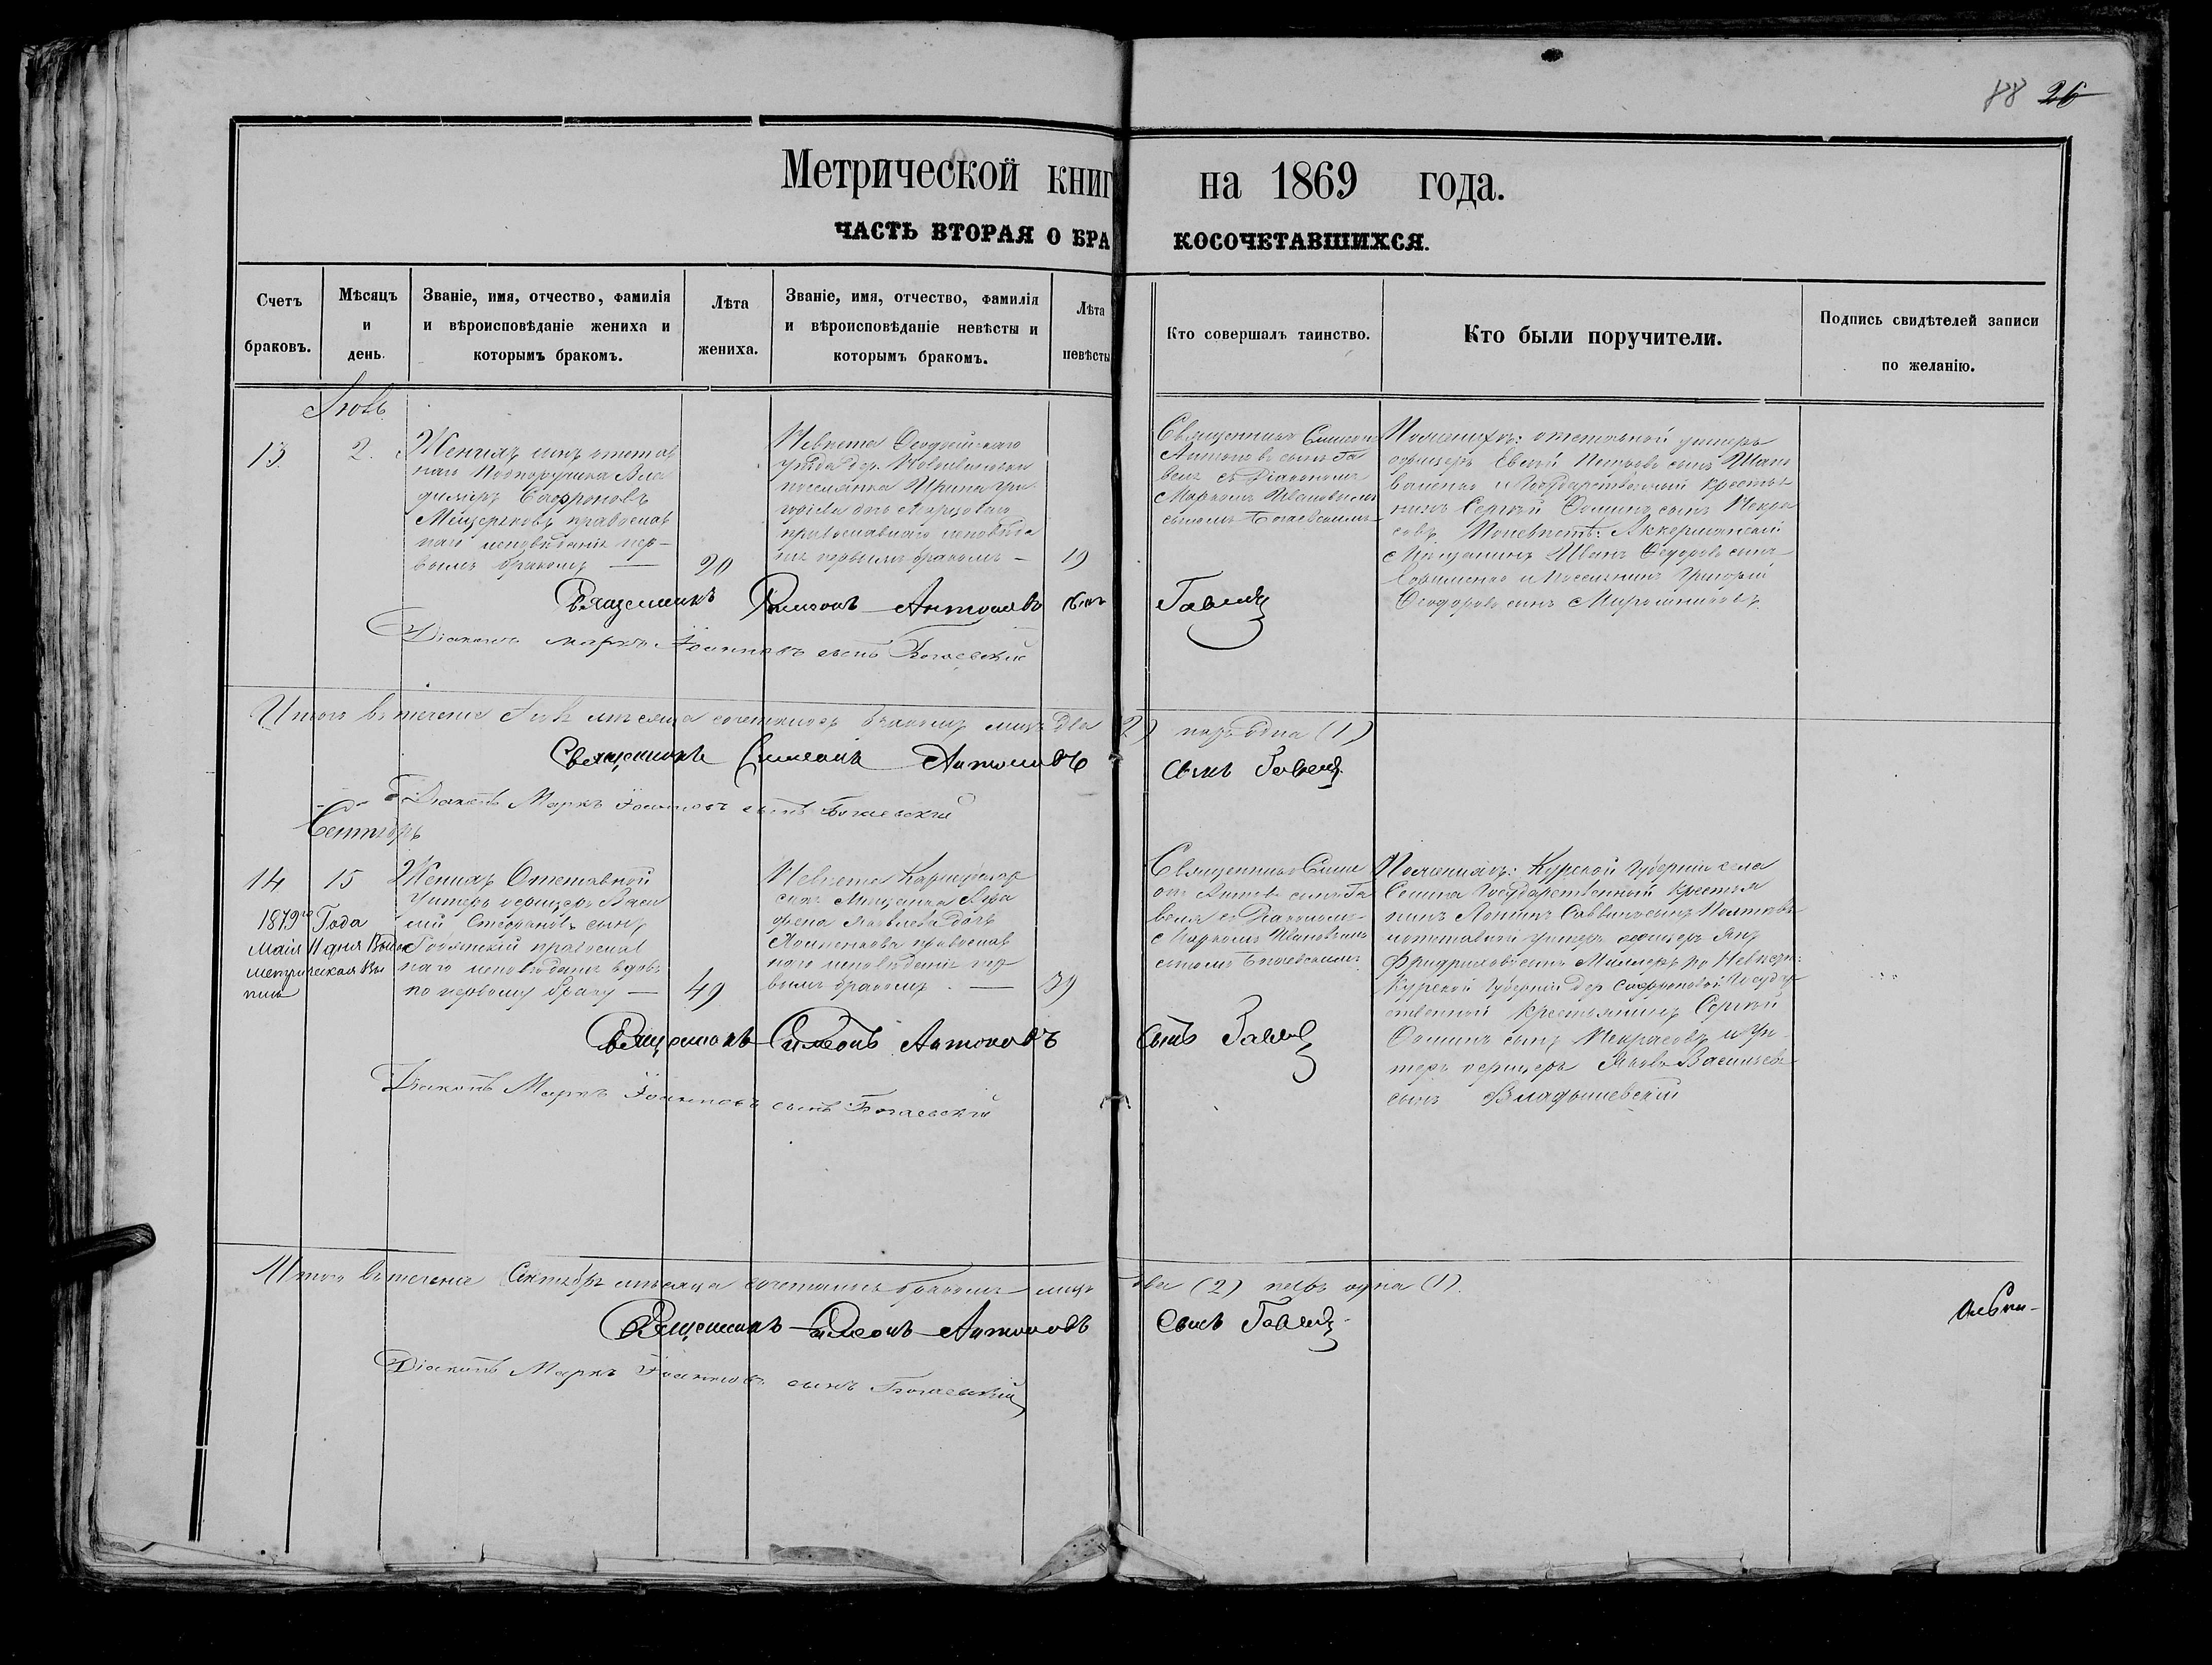 88 26
Метрической книг на 1869 года.
ЧАСТЬ ВТОРАЯ О БРА КОСОЧЕТАВШИХСЯ.
Счетъ
браковъ.
Мѣсяцъ
и
день.
Званіе, имя, отчество, фамилія
и вѣроисповѣданіе жениха и
которымъ бракомъ.
Лѣта
жениха.
Званіе, имя, отчество, фамилія
и вѣроисповѣданіе невѣсты и
которымъ бракомъ.
Лѣта
невѣсты
Кто совершалъ таинство.
Кто были поручители.
Подпись свидѣтелей записи
по желанію.
13.
2.
Женихъ сынъ отстав
наго Подпоручика Вла
диміръ Софроновъ
Мищенковъ православ
наго исповѣданія пер-
вымъ бракомъ —
20
Невѣста
уѣзда дер.
поселянка Ирина Гри
горіева дочь
православнаго исповѣда
нія первымъ бракомъ —
19
Священникъ Симеонъ
Антоновъ сынъ Га
вель съ Діакономъ
Маркомъ Ивановымъ
сыномъ Богаевскимъ
По женихѣ: отставной унтеръ
офицеръ Евсей Петровъ сынъ
и Государственный крестья
нинъ Сергѣй Фоминъ сынъ Некра
совъ. По невѣстѣ: Аккерманскій
Мѣщанинъ Иванъ Федоровъ сынъ
и Поселянинъ Григорій
Феодоровъ сынъ Мирошниковъ
Священникъ Симеонъ Антоновъ сынъ Гавель
Діаконъ Маркъ Іоанновъ сынъ Богаевскій
Итого въ теченіе мѣсяца сочеталось бракомъ лицъ два (2) паръ одна (1)
Священникъ Симеонъ Антоновъ сынъ Гавель
Діаконъ Маркъ Іоанновъ сынъ Богаевскій
Сентябрь
14
15
1879го Года
Маія 11 дня
метрическая вы
пись
Женихъ Отставной
Унтеръ офицеръ Васи
лій Стефановъ сынъ
православ
наго исповѣданія вдовъ
по первому браку —
49
Невѣста
Мѣщанка
Яковлева дочь
православ
наго исповѣданія пер
вымъ бракомъ. —
39
Священникъ Симе
онъ Антоновъ сынъ Га
вель съ Діакономъ
Маркомъ Ивановымъ
сыномъ Богаевскимъ
По женихѣ: Курской Губерніи села
Государственный крестья
нинъ Саввинъ сынъ
и отставной унтеръ офицеръ Янъ
Фридриховъ сынъ Миллеръ по Невѣстѣ:
Курской Губерніи дер. Софроновой Государ
ственной крестьянинъ Сергѣй
Фоминъ сынъ Некрасовъ и Ун
теръ офицеръ Яковъ Васильевъ
сынъ Владышевскій
Священникъ Симеонъ Антоновъ сынъ Гавель
Діаконъ Маркъ Іоанновъ сынъ Богаевскій
Итого въ теченіе Сентябрѣ мѣсяца сочеталось бракомъ лицъ два (2) паръ одна (1).
Священникъ Симеонъ Антоновъ сынъ Гавель
Діаконъ Маркъ Іоанновъ сынъ Богаевскій